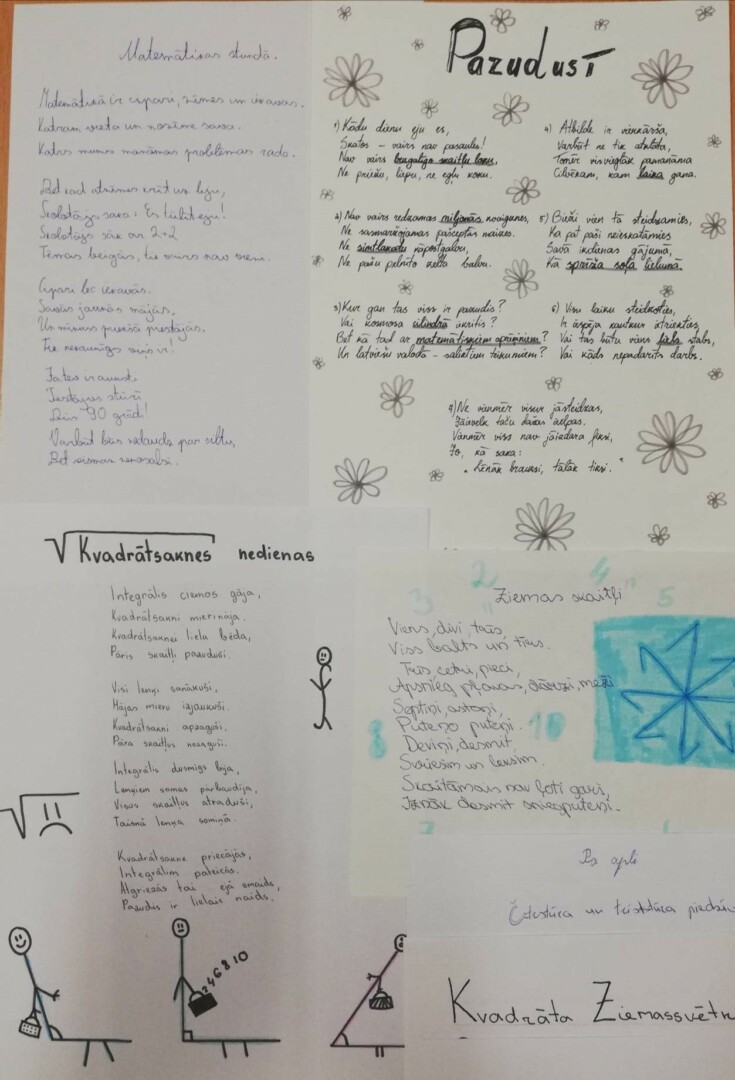 Matemātikas stundā.
Matemātikā ir cipari, zīmes un iekavas.
Katram vieta un nozīme sava.
Katrs mums mānāmas problēmas rada.
Bet kad atzīmes krāt us leju,
Skolotājs saka: Es tūlīt eju!
Skolotājs sāk ar 2+2
Tēmas beigās, tie vairs nav viens.
Cipari lec iekavās,
Savās jaunās mājās,
Un mīnuss priekšā piestājās,
Tie nekaunīgs viņš ir!
Ja tev ir auksti,
Iestājies stūrī
Būs 90 grādi!
Varbūt būs nedaudz par siltu,
Bet vismaz nenosalsi.
Pazudusī
1) Kādu dienu eju es,
Skatos - vairs nav pasaules!
Nav vairs bezgalīgo skaitļu loku,
Ne priežu, liepu, ne egļu koku.
2) Nav vairs redzamas miljonās noaugsnes,
Ne sasmaržojamas pašceptās maizes.
Ne simtlakatu kāpostgalvu,
Ne pašu pelnīto zelta balvu.
3) Kur gan tas viss ir pazudis?
Vai kosmosa cilindrā iekritis?
Bet kā tad ar matemātiskiem aprēķiniem?
Un latviešu valodā - saliktiem teikumiem?
4) Atbilde ir vienkārša,
Varbūt ne tik atklāta,
Tomēr visvieglāk pamanāma
Cilvēkam, kam laika gana.
5) Bieži vien tā steidzamies,
Ka pat paši neieskatāmies
Savā ikdienas gājumā,
Kā sprīža soļa lielumā.
6) Visu laiku steidzoties,
Ir iespēja kautkur ietriekties,
Vai tas būtu viens kuba stabs,
Vai kāds nepadarīts darbs.
7) Ne vienmēr visur jāsteidzas,
Jāievelk taču dažas elpas.
Vienmēr viss nav jāizdara fiksi,
Jo, kā saka:
"Lēnāk brauksi, tālāk tiksi."
√Kvadrātsaknes nedienas
Integrālis ciemos gāja,
Kvadrātsakni mierināja.
Kvadrātsaknei liela bēda,
Pāris skaitļi pazuduši.
Visi leņķi sanākuši,
Mājas mieru izjaukuši.
Kvadrātsakni apzaguši.
Pāra skaitļus nozaguši.
Integrālis dusmīgs bija,
Leņķiem somas pārbaudīja,
Visus skaitļus atraduši,
Taisnā leņķa somiņā.
Kvadrātsakne priecājās,
Integrālim pateicās.
Atgriezās tai sejā smaids,
Pazudis ir lielais naids.
2 4 6 8 10
Ziemas skaitļi
Viens, divi, trīs,
Viss balts un tīrs.
Trīs, četri, pieci,
Apsnieg pļavas, dārzi, meži
Septiņi, astoņi,
Puteņo puteņi.
Deviņi, desmit,
Svilpsim un lēksim.
Skaitāmais nav ļoti garš,
Iznāk desmit sniegputeņi.
2
3
4
5
8
10
Pa apli
Četrstūra un trīsstūra piedzīv
Kvadrāta Ziemassvētk